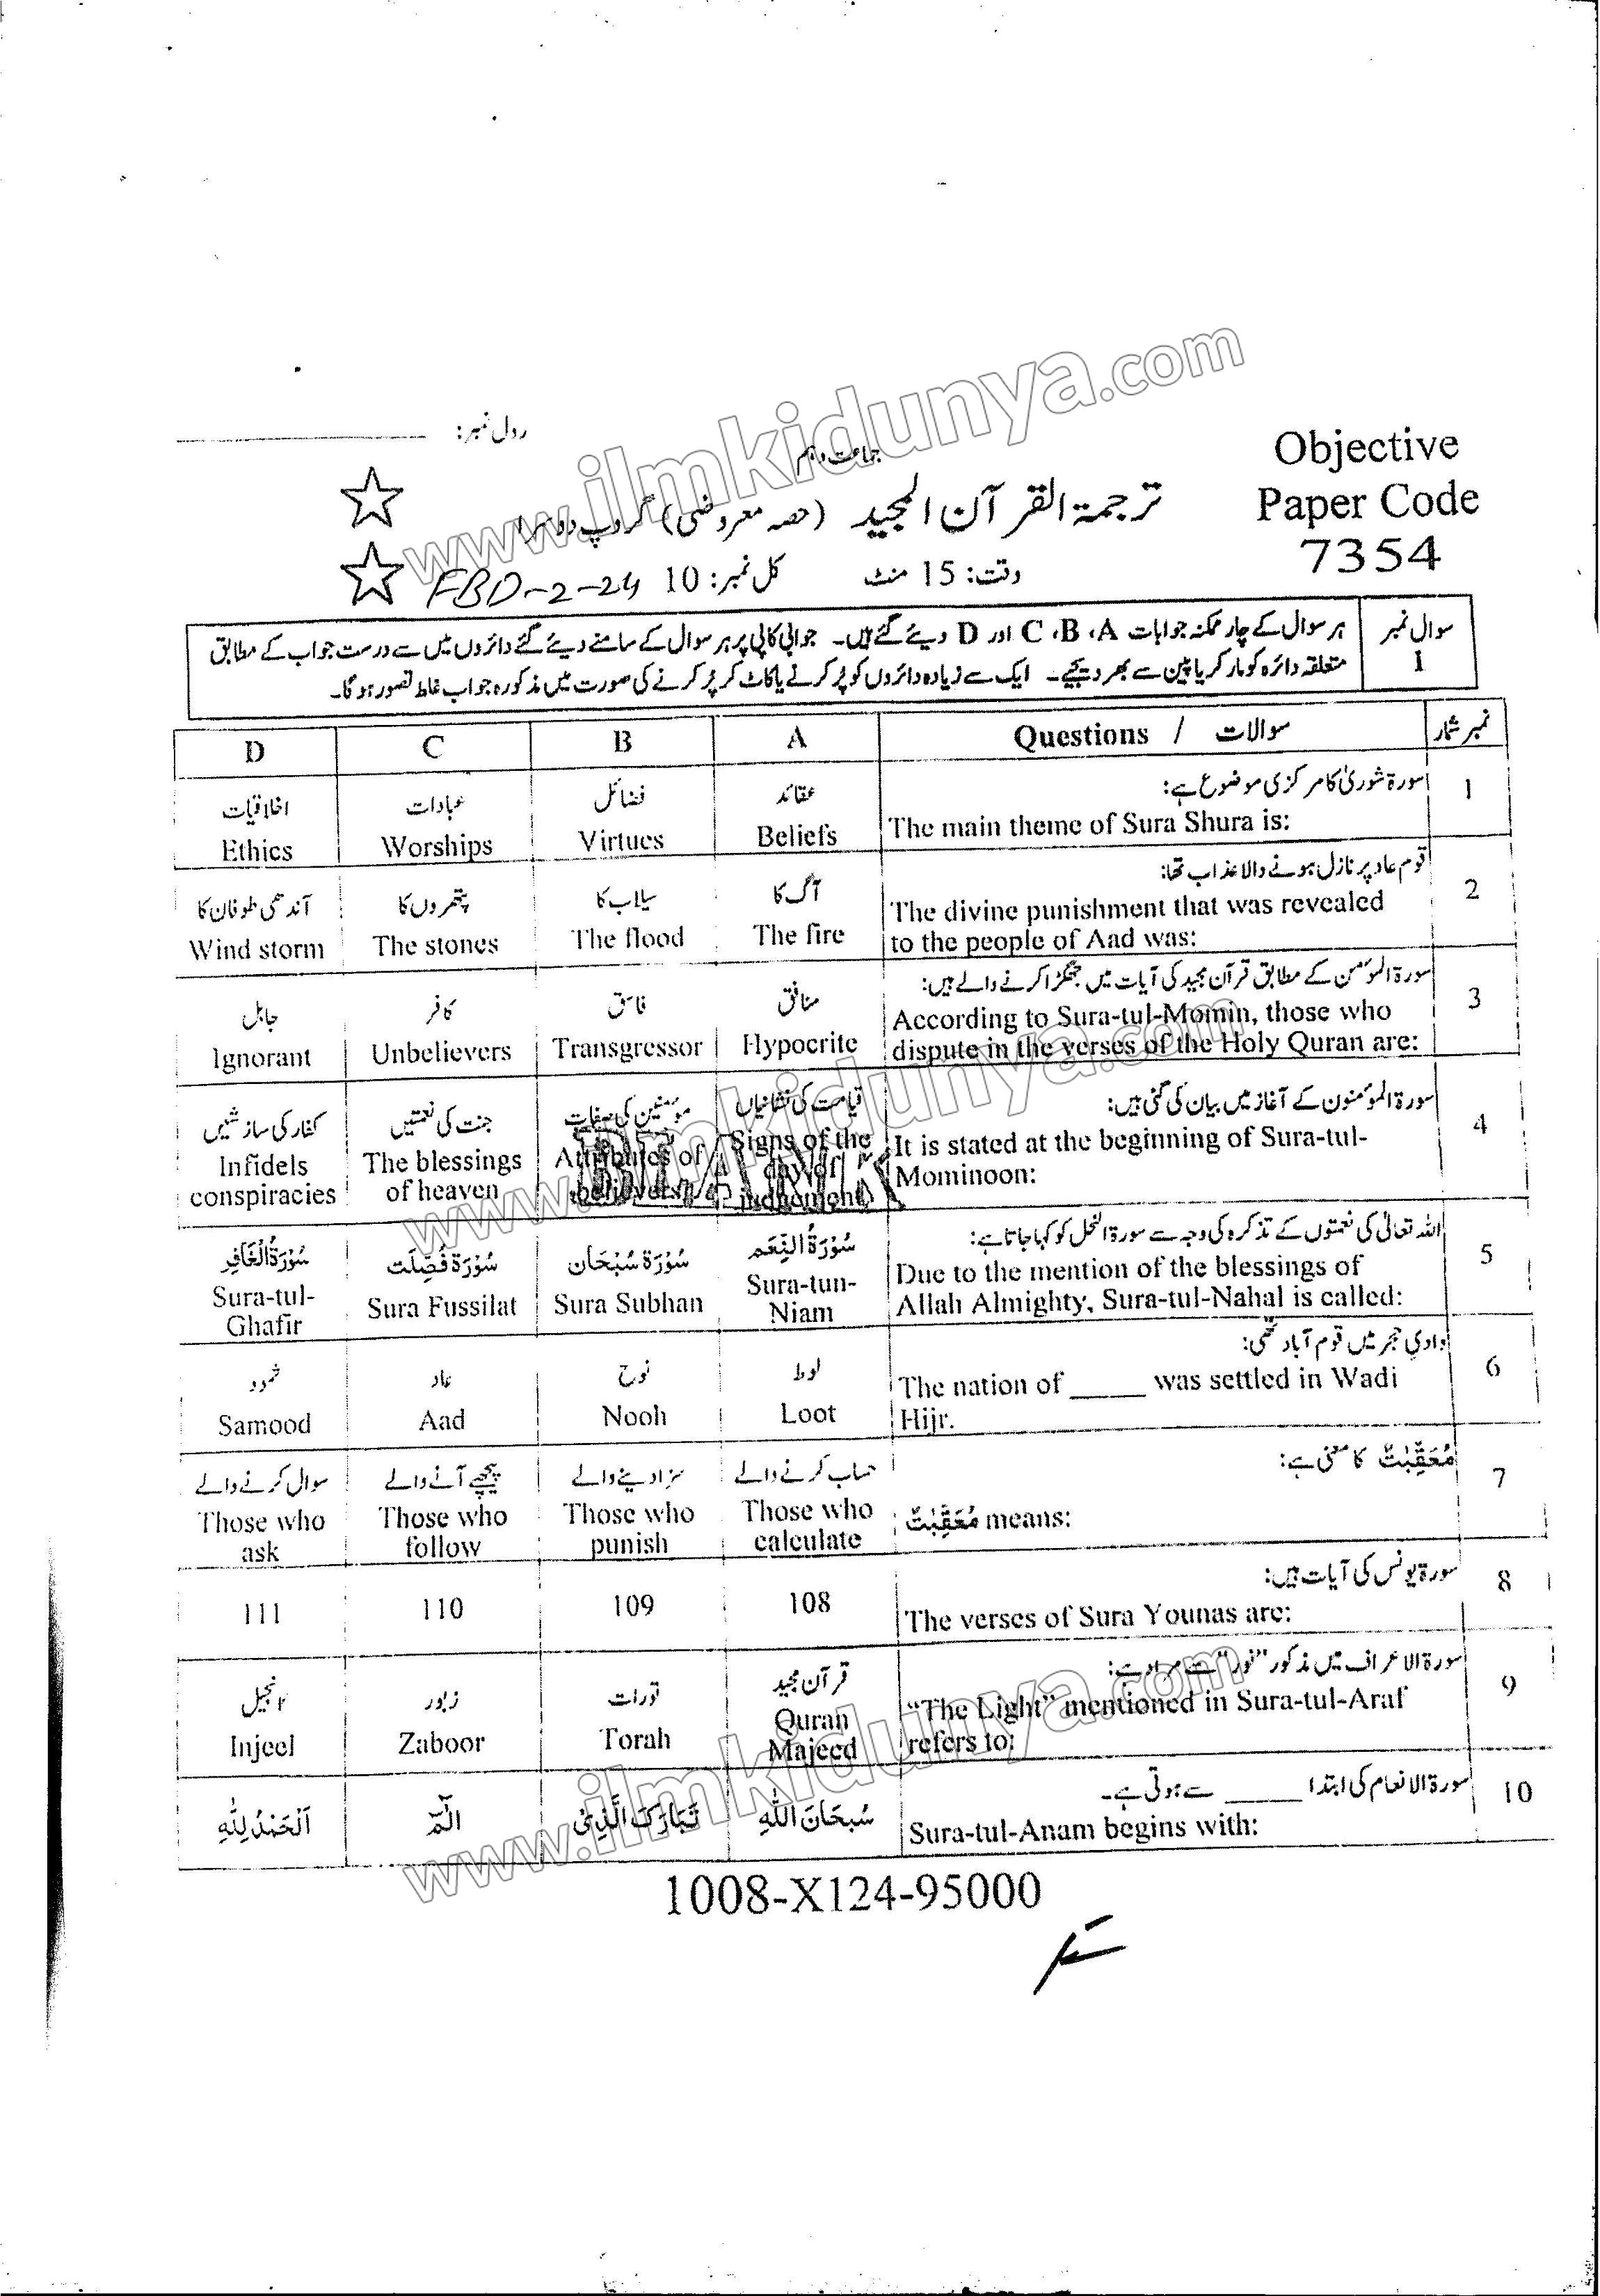 رول نمبر:
جماعت دہم
Objective
Paper Code
7354
ترجمۃ القرآن المجید (حصہ معروضی) گروپ دوسرا
وقت: 15 منٹ کل نمبر: 10
FBD-2-24
سوال نمبر 1
ہر سوال کے چار ممکنہ جوابات A، B، C اور D دیئے گئے ہیں۔ جوابی کاپی پر ہر سوال کے سامنے دیئے گئے دائروں میں سے درست جواب کے مطابق
متعلقہ دائرہ کو مارکر یا پین سے بھر دیجیے۔ ایک سے زیادہ دائروں کو پُر کرنے یا کاٹ کر پُر کرنے کی صورت میں مذکورہ جواب غلط تصور ہو گا۔
نمبر شمار
سوالات / Questions
A
B
C
D
1
سورۃ شوریٰ کا مرکزی موضوع ہے:
The main theme of Sura Shura is:
عقائد
Beliefs
فضائل
Virtues
عبادات
Worships
اخلاقیات
Ethics
2
قوم عاد پر نازل ہونے والا عذاب تھا:
The divine punishment that was revealed
to the people of Aad was:
آگ کا
The fire
سیلاب کا
The flood
پتھروں کا
The stones
آندھی طوفان کا
Wind storm
3
سورۃ المؤمن کے مطابق قرآن مجید کی آیات میں جھگڑا کرنے والے ہیں:
According to Sura-tul-Momin, those who
dispute in the verses of the Holy Quran are:
منافق
Hypocrite
فاسق
Transgressor
کافر
Unbelievers
جاہل
Ignorant
4
سورۃ المؤمنون کے آغاز میں بیان کی گئی ہیں:
It is stated at the beginning of Sura-tul-
Mominoon:
قیامت کی نشانیاں
Signs of the
day of
judgment
مؤمنین کی صفات
Attributes of
believers
جنت کی نعمتیں
The blessings
of heaven
کفار کی سازشیں
Infidels
conspiracies
5
اللہ تعالیٰ کی نعمتوں کے تذکرہ کی وجہ سے سورۃ النحل کو کہا جاتا ہے:
Due to the mention of the blessings of
Allah Almighty, Sura-tul-Nahal is called:
سُوْرَۃُ النِّعَم
Sura-tun-
Niam
سُوْرَۃ سُبْحَان
Sura Subhan
سُوْرَۃ فُصِّلَت
Sura Fussilat
سُوْرَۃُ الْغَافِر
Sura-tul-
Ghafir
6
وادیِ حجر میں قوم آباد تھی:
The nation of _____ was settled in Wadi
Hijr.
لوط
Loot
نوح
Nooh
عاد
Aad
ثمود
Samood
7
مُعَقِّبٰتٌ کا معنی ہے:
مُعَقِّبٰتٌ means:
حساب کرنے والے
Those who
calculate
سزا دینے والے
Those who
punish
پیچھے آنے والے
Those who
follow
سوال کرنے والے
Those who
ask
8
سورۃ یونس کی آیات ہیں:
The verses of Sura Younas are:
108
109
110
111
9
سورۃ الاعراف میں مذکور "نور" سے مراد ہے:
"The Light" mentioned in Sura-tul-Araf
refers to:
قرآن مجید
Quran
Majeed
تورات
Torah
زبور
Zaboor
انجیل
Injeel
10
سورۃ الانعام کی ابتدا _____ سے ہوتی ہے۔
Sura-tul-Anam begins with:
سُبحَانَ اللّٰہِ
تَبَارَکَ الَّذِیْ
الٓمّٓ
اَلْحَمْدُ لِلّٰہِ
1008-X124-95000
www.ilmkidunya.com
www.ilmkidunya.com
www.ilmkidunya.com